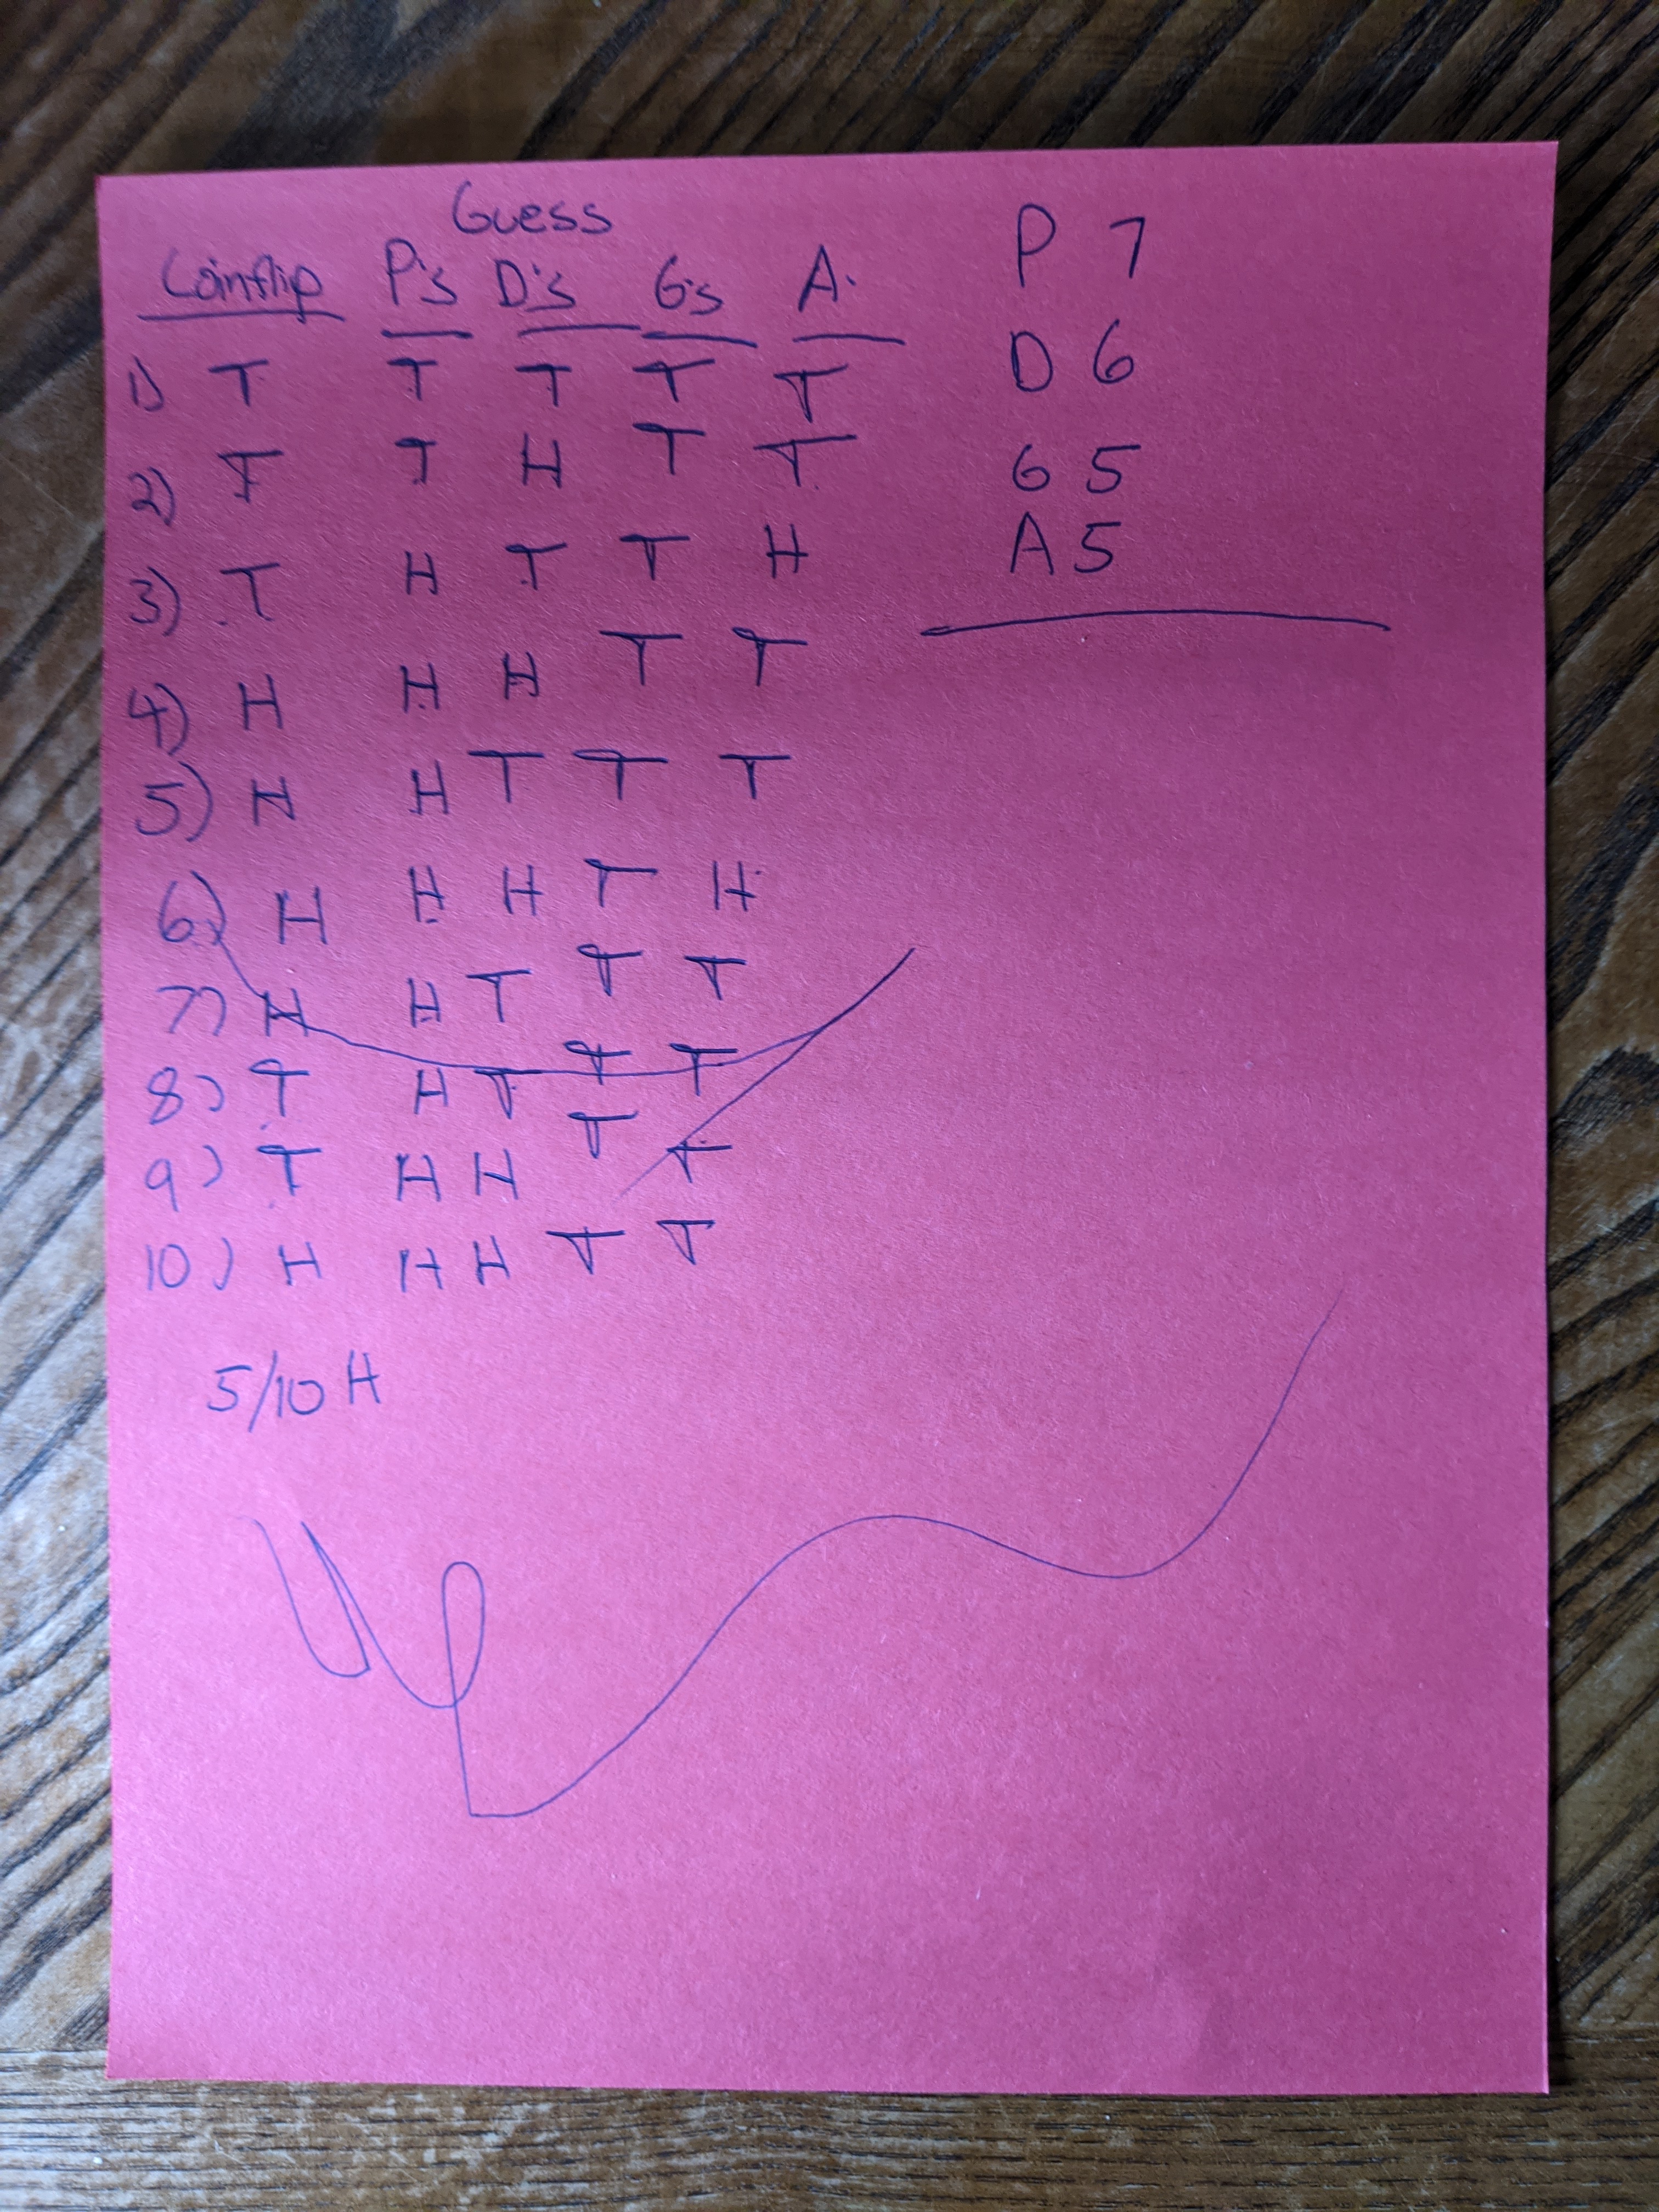 Guess
Coinflip P's D's G's A.
1) T T T T T
2) T T H T T
3) T H T T H
4) H H H T T
5) H H T T T
6) H H H T H
7) H H T T T
8) T H T T T
9) T H H T T
10) H H H T T
5/10 H
P 7
D 6
G 5
A 5